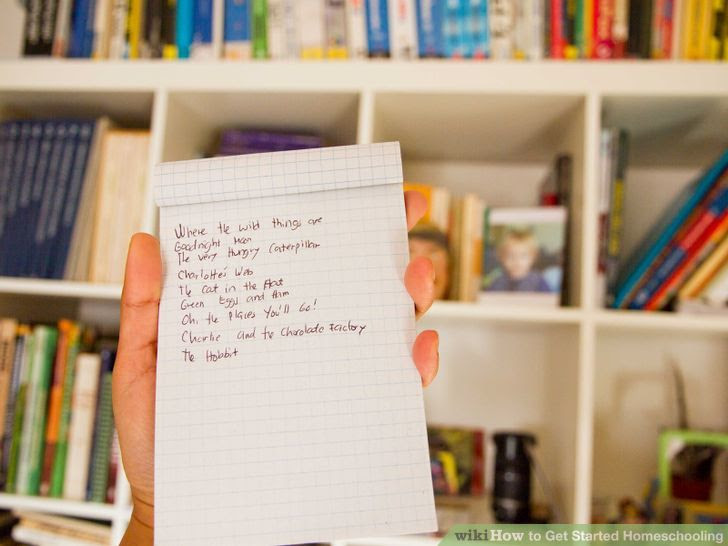 Where the wild things are
Goodnight Moon
The very Hungry Caterpillar
Charlotte's Web
The Cat in the Hat
Green Eggs and Ham
Oh, the Places You'll Go!
Charlie and the Chocolate Factory
The Hobbit
wikiHow to Get Started Homeschooling